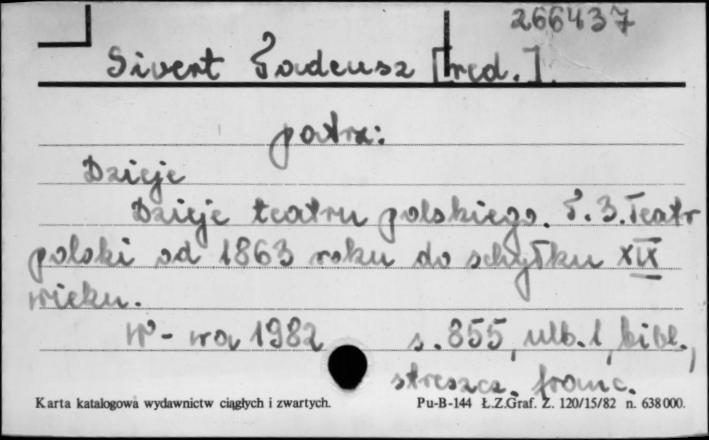 266437
Sivert Tadeusz [red.].
patrz:
Dzieje
Dzieje teatru polskiego. T. 3. Teatr
polski od 1863 roku do schyłku XIX
wieku.
W-wa 1982 s. 855, ulb. 1, bibl.,
streszcz. franc.
Karta katalogowa wydawnictw ciągłych i zwartych. Pu-B-144 Ł.Z.Graf. Z. 120/15/82 n. 638000.